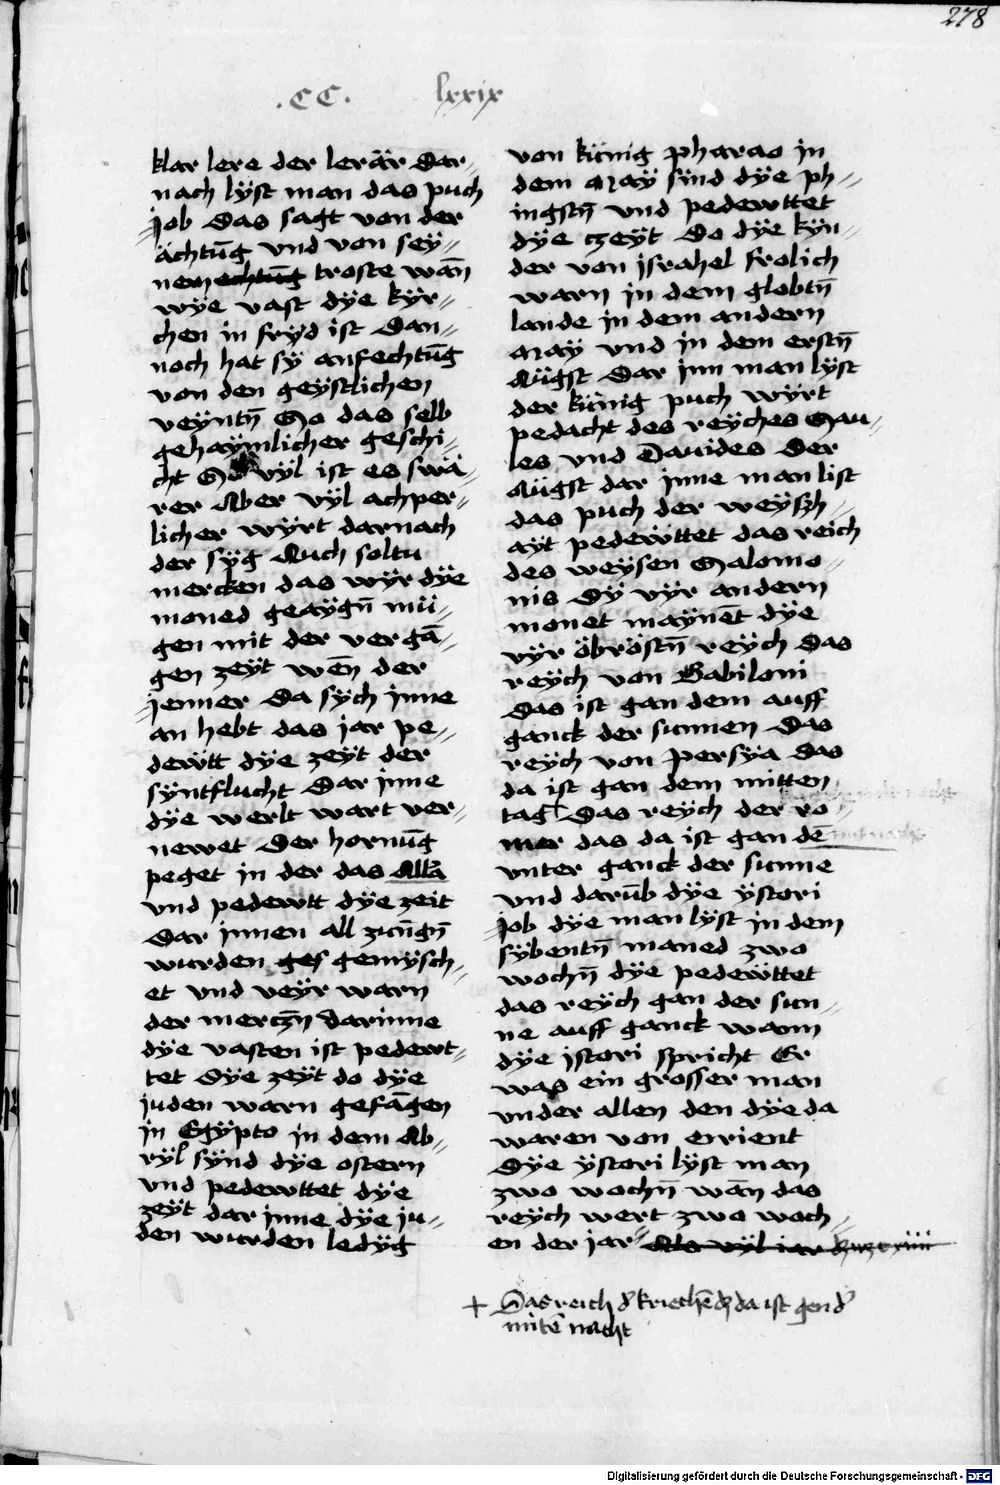 278
.CC. lxxix
klar lere der lerär Dar-
nach lÿst man das puch
Job Das sagt von der
ächtūg vnd von seÿ-
nem echtūg troste wañ
wÿe vast dÿe kÿr-
chen in frÿd ist Dan-
noch hat sÿ anfechtūg
von den geÿstlichen
veÿntñ So das selb
gehaÿmlicher geschi-
cht So vÿl ist es swä-
rer Aber vÿl achper-
licher wÿrt darnach
der sÿg Auch soltu
mercken das wÿr dÿe
moned geaÿgñ mü-
gen mit der vergā-
gen zeÿt weñ der
Jenner Da sÿch jnne
an hebt das jar pe-
dewtt dÿe zeÿt der
sÿntflucht Dar jnne
dÿe werlt wart ver-
newet Der hornūg
peget in der das Alla
vnd pedewtt dÿe zeit
Dar jnnen all zūngñ
wurden ges gemÿsch-
et vnd veÿr warn
der merczñ Darinne
dÿe vasten ist pedewt-
tet Dÿe zeÿt do dÿe
juden warn gefāgen
in Egÿpto in dem Ab-
rÿl sÿnd dÿe ostern
vnd pedewttet dÿe
zeÿt dar jnne dÿe ju-
den wurden ledÿg
von künig pharao jn
dem Maÿ sind dÿe ph-
ingstñ vnd pedewttet
dÿe czeÿt Do dÿe kÿn-
der von jsrahel frolich
warn in dem globtñ
lande in dem andern
Maÿ vnd in dem erstñ
Aügst Dar jnn man lÿst
der künig puch wÿrt
pedacht des reÿches Sau-
les vnd Dauides Der
Aügst dar jnne man list
das puch der weÿszh-
aÿt pedewttet das reich
des weÿsen Salomo-
nis Dÿ vÿr andern
monet maÿnēt dÿe
vÿr öbröstñ reÿch das
reÿch von Babiloni
Das ist gan dem auff
ganck der sunnen Das
reÿch von Persÿa Das
da ist gan dem mitten
tag Das reÿch der ro-
mer das da ist gan dē
vnter ganck der sunne
vnd darūb dÿe ÿstori
Job dÿe man lÿst in dem
sÿbentñ maned zwo
wochñ dÿe pedewttet
das reÿch gan der sun-
ne auff ganck wann
dÿe jstori spricht Er
was ein grosser man
vnder allen den dÿe da
waren von orrient
Dÿe ÿstori lÿst man
zwo wochñ wañ das
reÿch wert zwo woch-
en der jar Als vÿl jar
+ Das reich d' kriechē dz da ist gen d'
mitē nacht
Digitalisierung gefördert durch die Deutsche Forschungsgemeinschaft - DFG